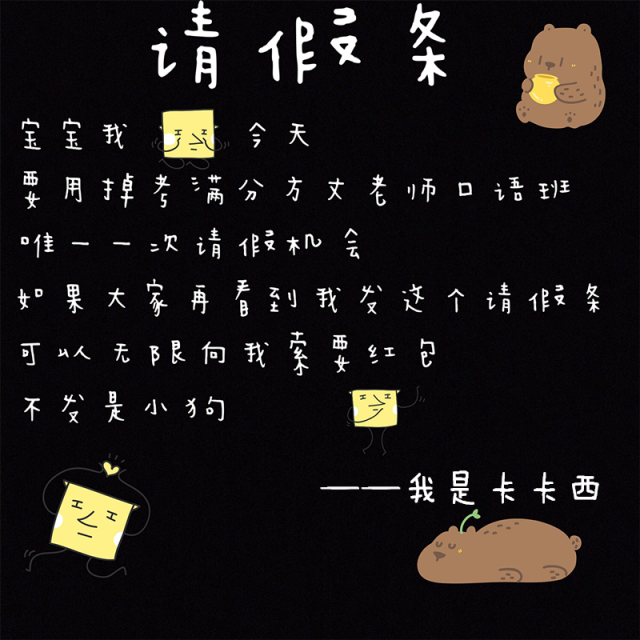 请假条
宝宝我 今天
要用掉考满分方丈老师口语班
唯一一次请假机会
如果大家再看到我发这个请假条
可以无限向我索要红包
不发是小狗
——我是卡卡西